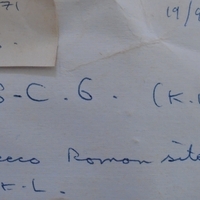 71
19/9
S-C. 6. (K.
eco Roman site
K.L.